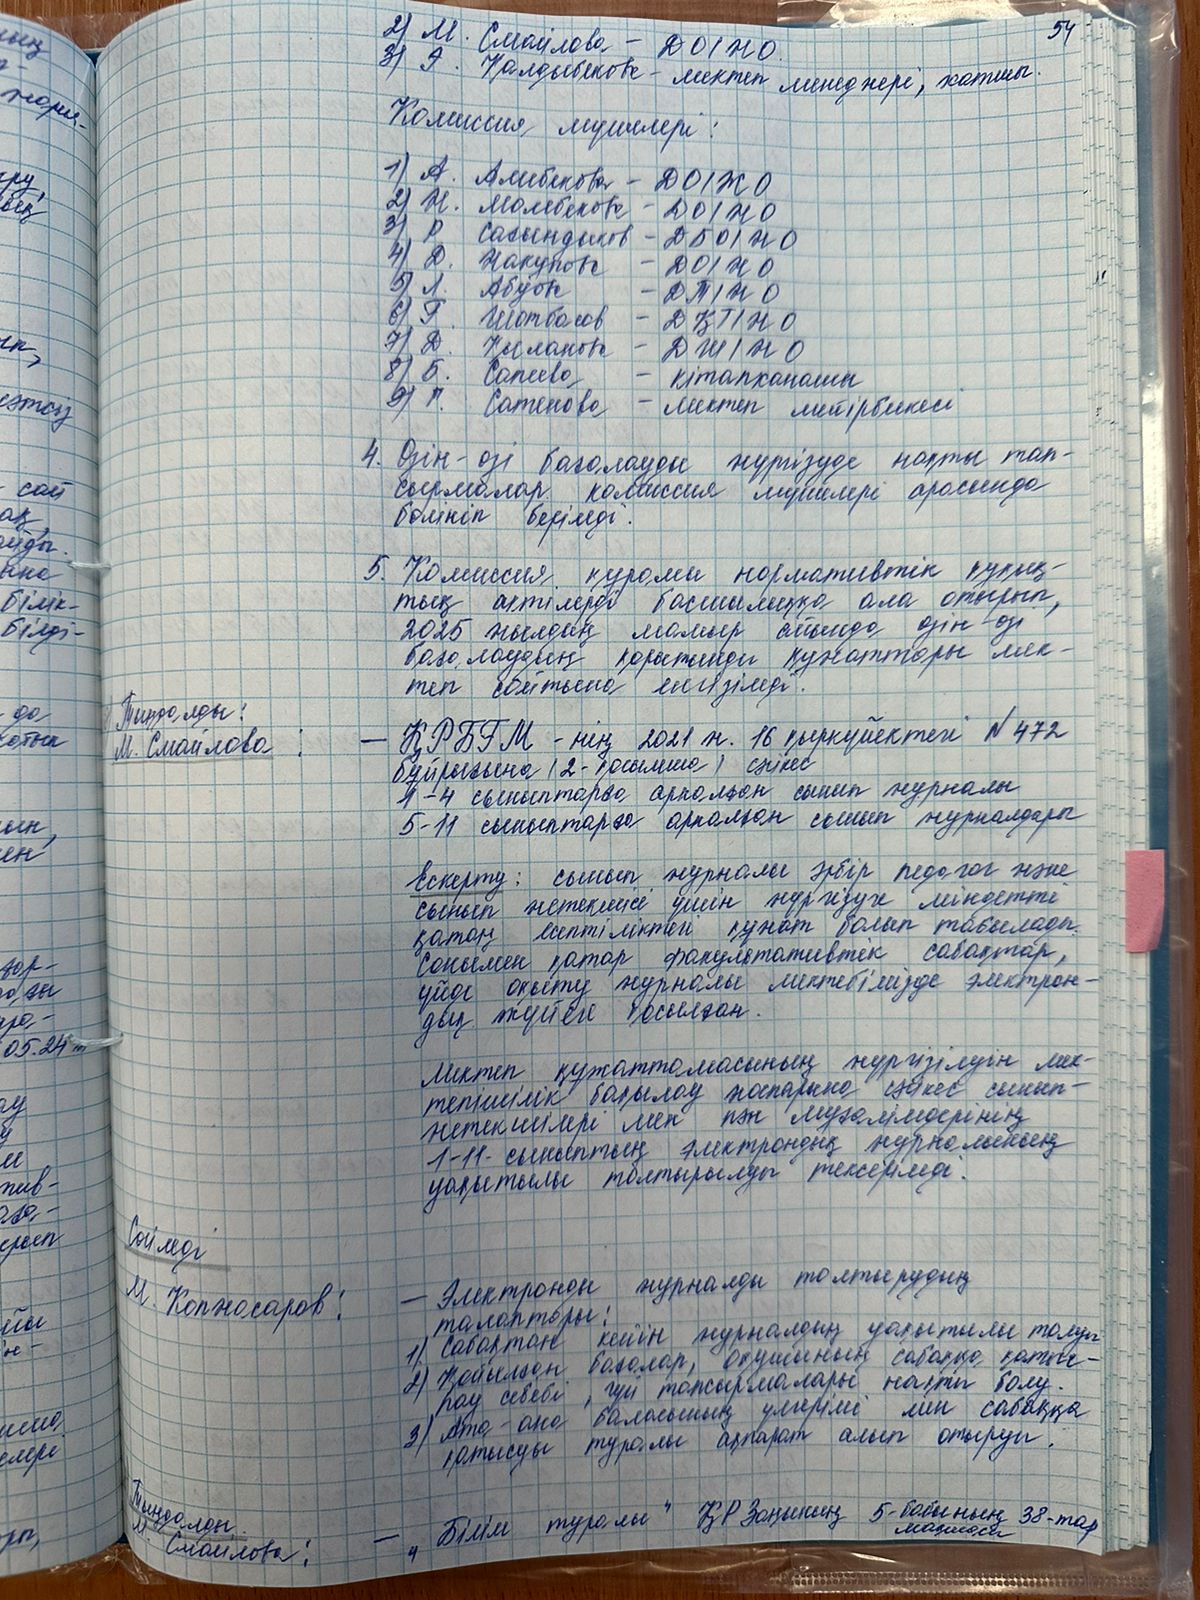 54
2) М. Смайлова – ДОІЖО.
3) Г. Қалдыбекова – мектеп менеджері, хатшы.
Комиссия мүшелері:
1) А. Алибекова – ДОІЖО
2) Н. Молбекова – ДОІЖО
3) Р. Сағындықов – ДБОІЖО
4) Д. Жакупова – ДОІЖО
5) Л. Абуова – ДТІЖО
6) Г. Шотбасов – ДҚТІЖО
7) Д. Қыланова – ДШІЖО
8) Б. Сапиева – кітапханашы
9) Г. Сатенова – мектеп мейірбикесі
4. Өзін-өзі бағалауды жүргізуде нақты тап-
сырмалар комиссия мүшелері арасында
бөлініп берілді.
5. Комиссия құрамы нормативтік құқық-
тық актілерді басшылыққа ала отырып,
2025 жылдың мамыр айында өзін-өзі
бағалаудың қорытынды құжаттары мек-
теп сайтына енгізілді.
Тыңдалды:
М. Смайлова :
– ҚРБҒМ-нің 2021 ж. 16 қыркүйектегі №472
бұйрығына (2-қосымша) сәйкес
1-4 сыныптарға арналған сынып журналы
5-11 сыныптарға арналған сынып журналдары
Ескерту: сынып журналы әрбір педагог және
сынып жетекшісі үшін жүргізуге міндетті
қатаң есептіліктегі құжат болып табылады.
Сонымен қатар факультативтік сабақтар,
үйде оқыту журналы мектебімізде электрон-
дық жүйеге қосылған.
Мектеп құжаттамасының жүргізілуін мек-
тепішілік бақылау жоспарына сәйкес сынып-
жетекшілері мен пән мұғалімдерінің
1-11-сыныптың электрондық журналының
уақытылы толтырылуы тексерілді.
Сөйледі
М. Копжосаров :
– Электронды журналды толтырудың
талаптары:
1) Сабақтан кейін журналдың уақытылы толуы
2) Қойылған бағалар, оқушының сабаққа қатыс-
пау себебі, үй тапсырмалары нақты болу.
3) Ата-ана баласының үлгерімі мен сабаққа
қатысуы туралы ақпарат алып отыруы.
Тыңдалды
М. Смайлова :
– „Білім туралы" ҚР Заңының 5-бабының 38-тар
мақмасы